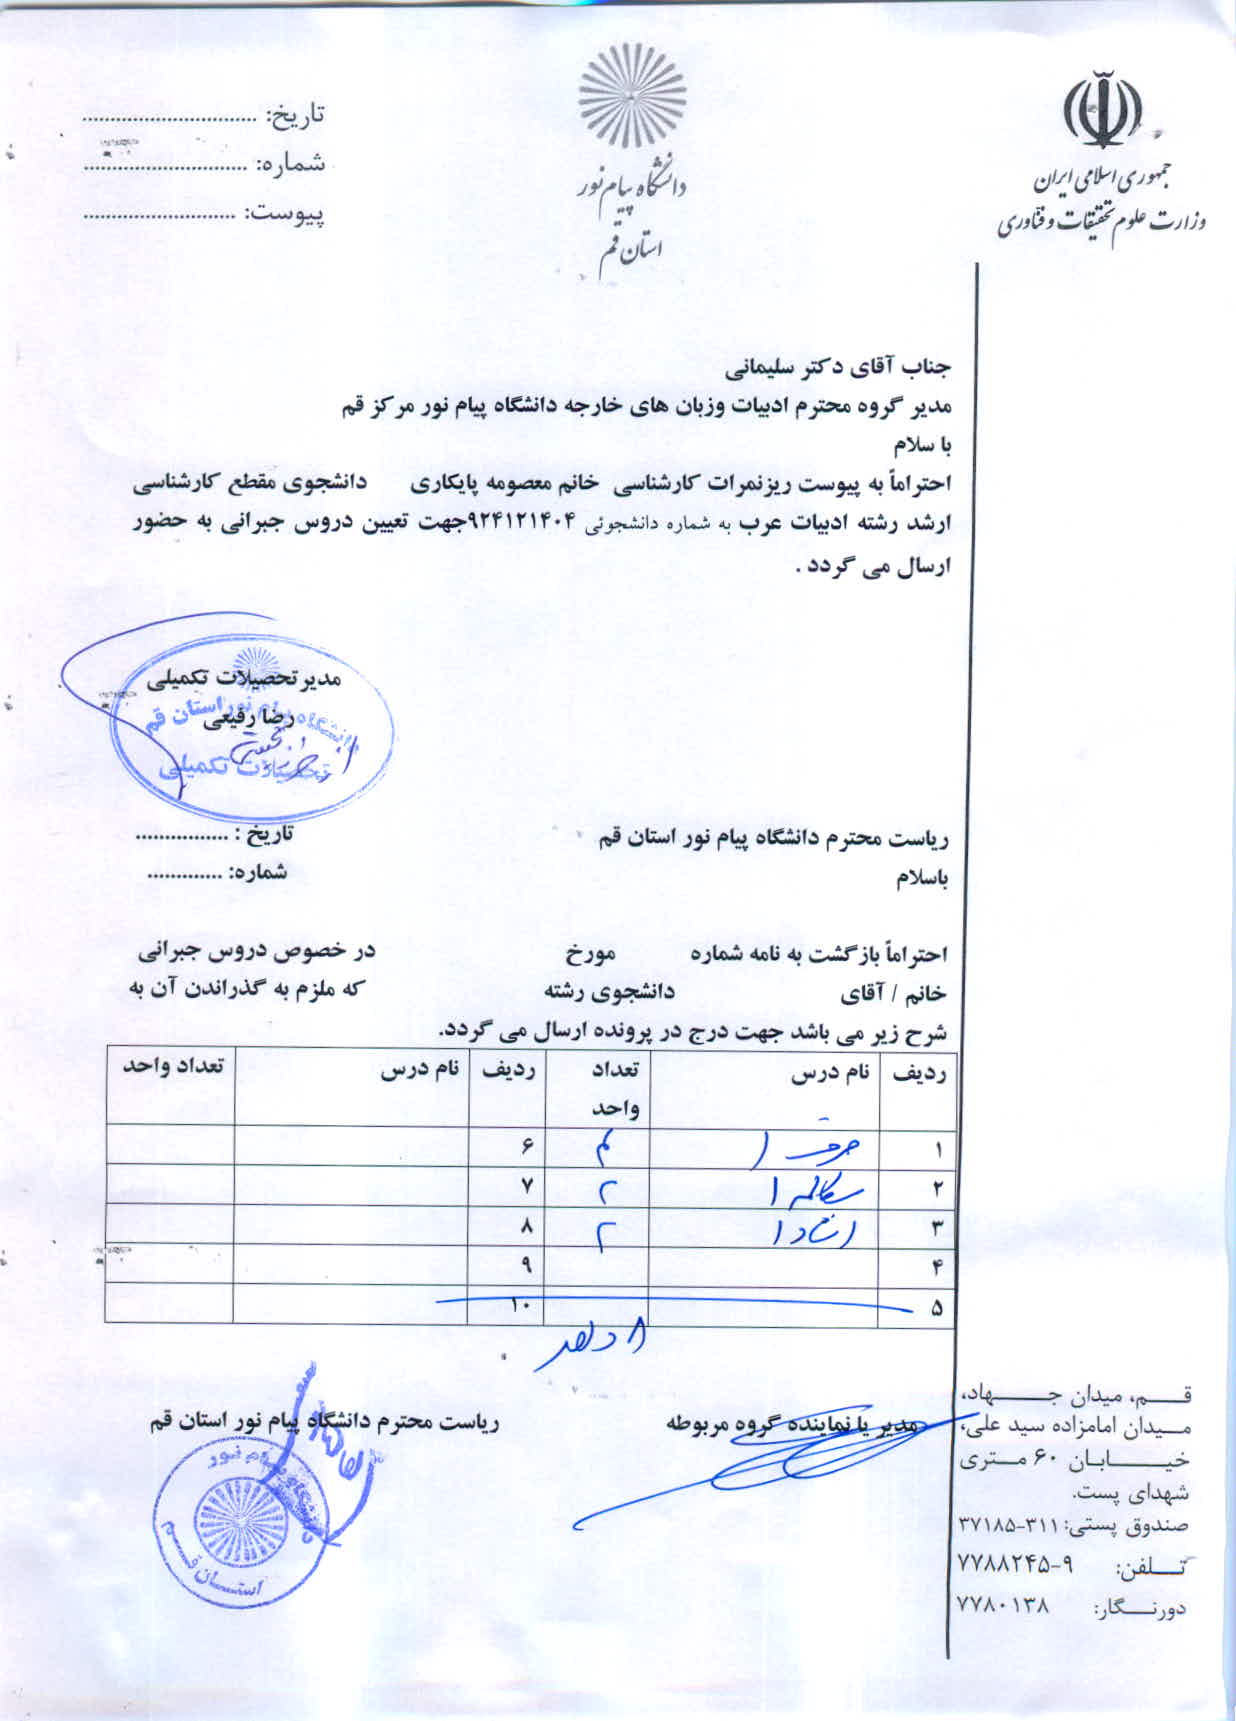 جمهوری اسلامی ایران
وزارت علوم تحقیقات و فناوری
دانشگاه پیام نور
استان قم
تاریخ: ...............................
شماره: .............................
پیوست: ...........................
جناب آقای دکتر سلیمانی
مدیر گروه محترم ادبیات وزبان های خارجه دانشگاه پیام نور مرکز قم
با سلام
احتراماً به پیوست ریزنمرات کارشناسی خانم معصومه پایکاری دانشجوی مقطع کارشناسی
ارشد رشته ادبیات عرب به شماره دانشجوئی ۹۲۴۱۲۱۴۰۴جهت تعیین دروس جبرانی به حضور
ارسال می گردد .
مدیرتحصیلات تکمیلی
رضا رفیعی
دانشگاه پیام نور استان قم
تحصیلات تکمیلی
ریاست محترم دانشگاه پیام نور استان قم
تاریخ : ................
باسلام
شماره: .............
احتراماً بازگشت به نامه شماره مورخ در خصوص دروس جبرانی
خانم / آقای دانشجوی رشته که ملزم به گذراندن آن به
شرح زیر می باشد جهت درج در پرونده ارسال می گردد.
ردیف نام درس تعداد واحد ردیف نام درس تعداد واحد
۱ صرف ۱ ۴ ۶
۲ مکالمه ۱ ۲ ۷
۳ انشاء ۱ ۲ ۸
۴ ۹
۵ ۱۰
۸ واحد
مدیر یا نماینده گروه مربوطه
ریاست محترم دانشگاه پیام نور استان قم
دانشگاه پیام نور
استان قم
قم، میدان جهاد،
میدان امامزاده سید علی،
خیابان ۶۰ متری
شهدای پست.
صندوق پستی: ۳۱۱-۳۷۱۸۵
تلفن: ۹-۷۷۸۸۲۴۵
دورنگار: ۷۷۸۰۱۳۸